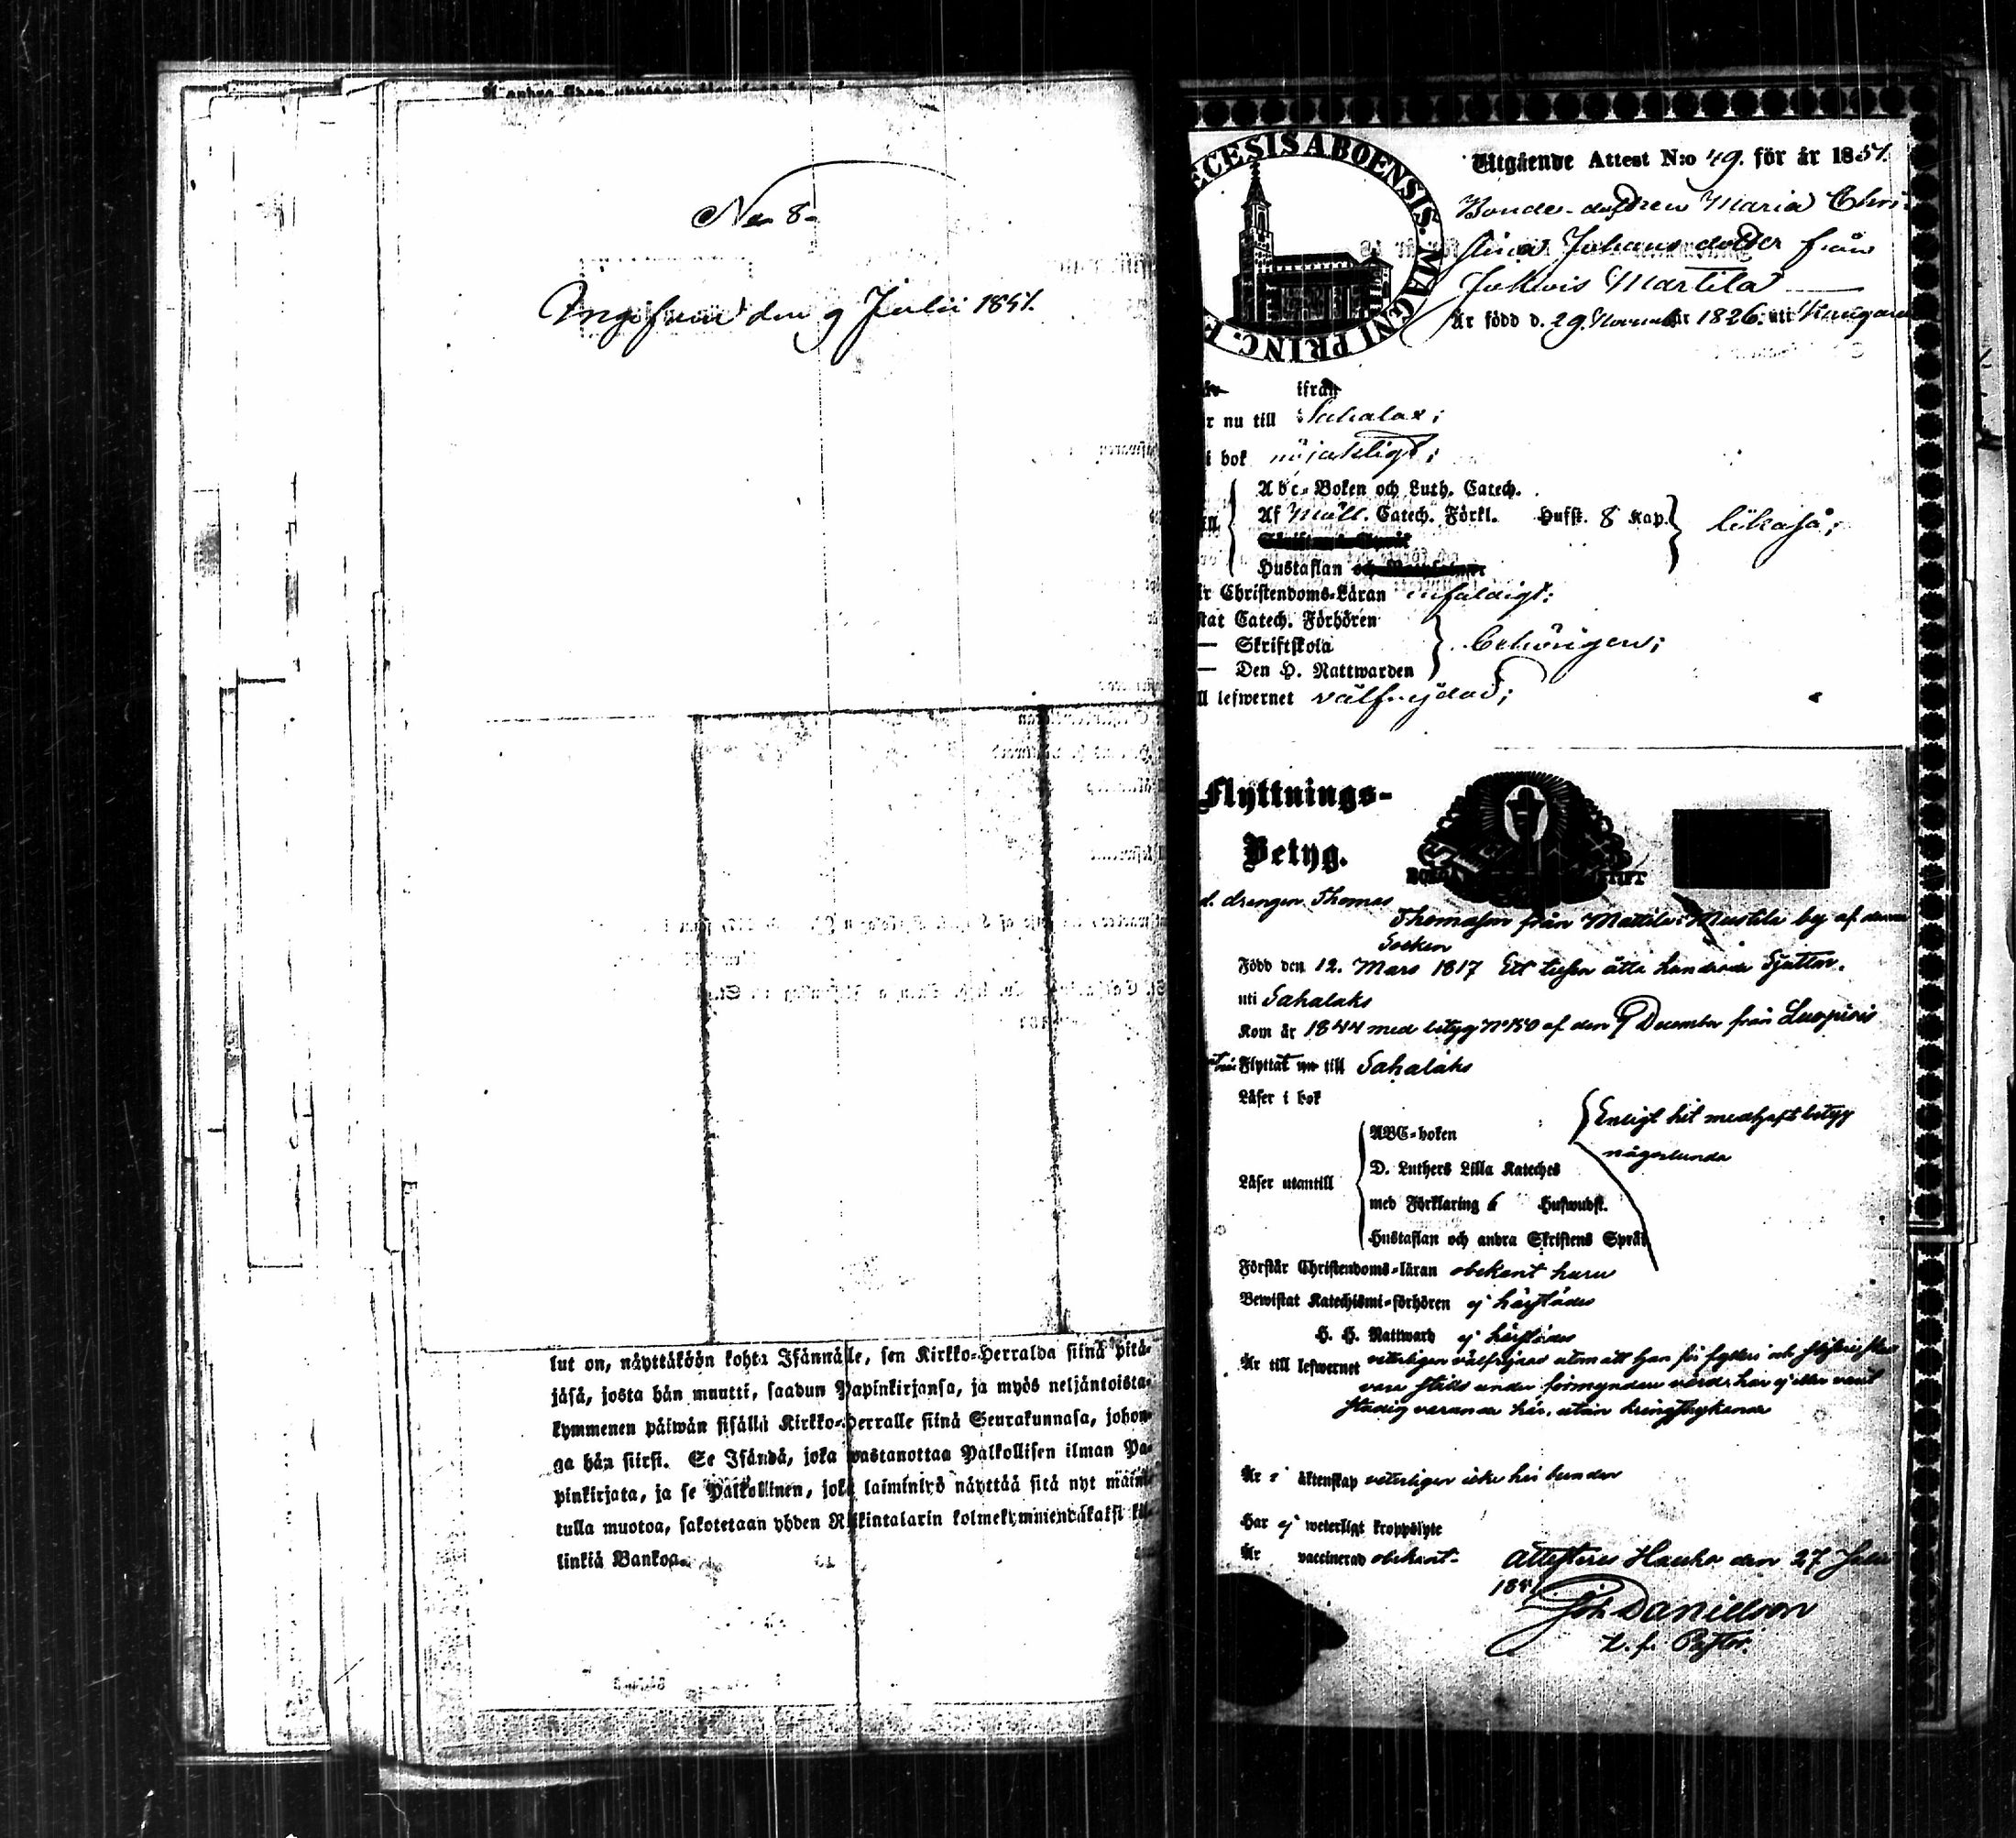 No 8.
Ingifven den 9 Julii 1851.
lut on, näyttäköön kohta Isännälle, sen Kirkko-Herralda siinä pitä-
jäsä, josta hän muutti, saadun Papinkirjansa, ja myös neljäntoista-
kymmenen päiwän sisällä Kirkko-Herralle siinä Seurakunnasa, johon-
ga hän siirsi. Se Isändä, joka wastanottaa Palkollisen ilman Pa-
pinkirjata, ja se Palkollinen, joka laiminlyö näyttää sitä nyt maini-
tulla muotoa, sakotetaan yhden Riikintalarin kolmekymmendäkaksi kil-
linkiä Bankoa.
ECESIS ABOENSIS. MAGNI PRINC. F
Utgående Attest N:o 49. för år 1851.
Bonde-dottren Maria Chri-
stina Johansdotter från
Martila
Är född d. 29. November 1826. uti Kangasa
ifrån
r nu till Sahalax;
i bok nöjaktigt;
Abc-Boken och Luth. Catech.
Af Möll. Catech. Förkl. Hufst. 8 Kap. likaså;
Hustaflan
r Christendoms-Läran enfaldigt;
stat Catech. Förhören
— Skriftskola behörigen;
— Den H. Nattwarden
ll lefwernet välfrejdad;
Flyttnings-
Betyg.
d. drengen Thomas
Thomasson från Mattila i Mustila by af denna
Socken
Född den 12. Mars 1817 Ett tusen åtta hundrade Sjutton.
uti Sahalaks
Kom år 1844 med betyg N:o 150 af den 9 December från Luopiois
Flyttat nu till Sahalaks
Läser i bok
Enligt hit medhaft betyg
någorlunda
ABC-boken
D. Luthers Lilla Kateches
Läser utantill
med Förklaring 6 Hufwudst.
Hustaflan och andra Skriftens Språk
Förstår Christendoms-läran obekant huru
Bewistat Katechismi-förhören ej härstädes
H. H. Nattward ej härstädes
Är till lefwernet veterligen välfrejdad utom att han för fylleri och
vara städs under förmyndare vård, har ej eller varit
stadig varande här, utan kringstrykande
Är i äktenskap veterligen icke här bunden
Har ej weterligt kroppslyte
Är vaccinerad obekant.
Attesteras Hauho den 27 Julii
1851
Joh Danielson
t. f. Pastor.